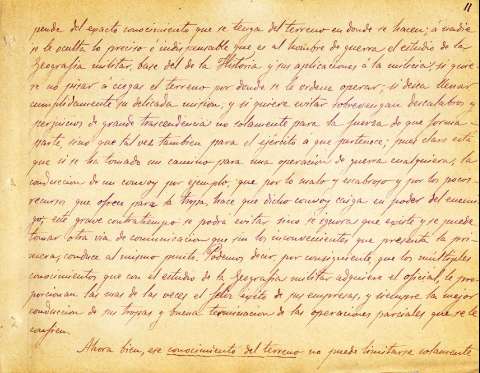 11
pende del exacto conocimiento que se tenga del terreno en donde se hacen; á nadie
se le oculta lo preciso é indispensable que es al hombre de guerra el estudio de la
Geografia militar, base del de la Historia y sus aplicaciones á la milicia, si quie-
re no pisar á ciegas el terreno por donde se le ordene operar; si desea llenar
cumplidamente su delicada mision, y si quiere evitar sobrevengan descalabros y
perjuicios de grande trascendencia no solamente para la fuerza de que forma
parte, sino que tal vez tambien para el ejército á que pertenece; pues claro está
que si se ha tomado un camino para una operacion de guerra cualquiera, la
conduccion de un convoy por ejemplo, que por lo malo y escabroso y por los pocos
recursos que ofrece para la tropa, hace que dicho convoy caiga en poder del enemi-
go; este grave contratiempo se podrá evitar sino se ignora que existe y se puede
tomar otra via de comunicacion que sin los inconvenientes que presenta la pri-
mera, conduce al mismo punto. Podemos decir, por consiguiente, que los multiples
conocimientos que con el estudio de la Geografia militar adquiere el oficial, le pro-
porcionan las mas de las veces el feliz éxito de sus empresas, y siempre la mejor
conduccion de sus tropas y buena terminacion de las operaciones parciales que se le
confien.
Ahora bien, ese conocimiento del terreno no puede limitarse solamente